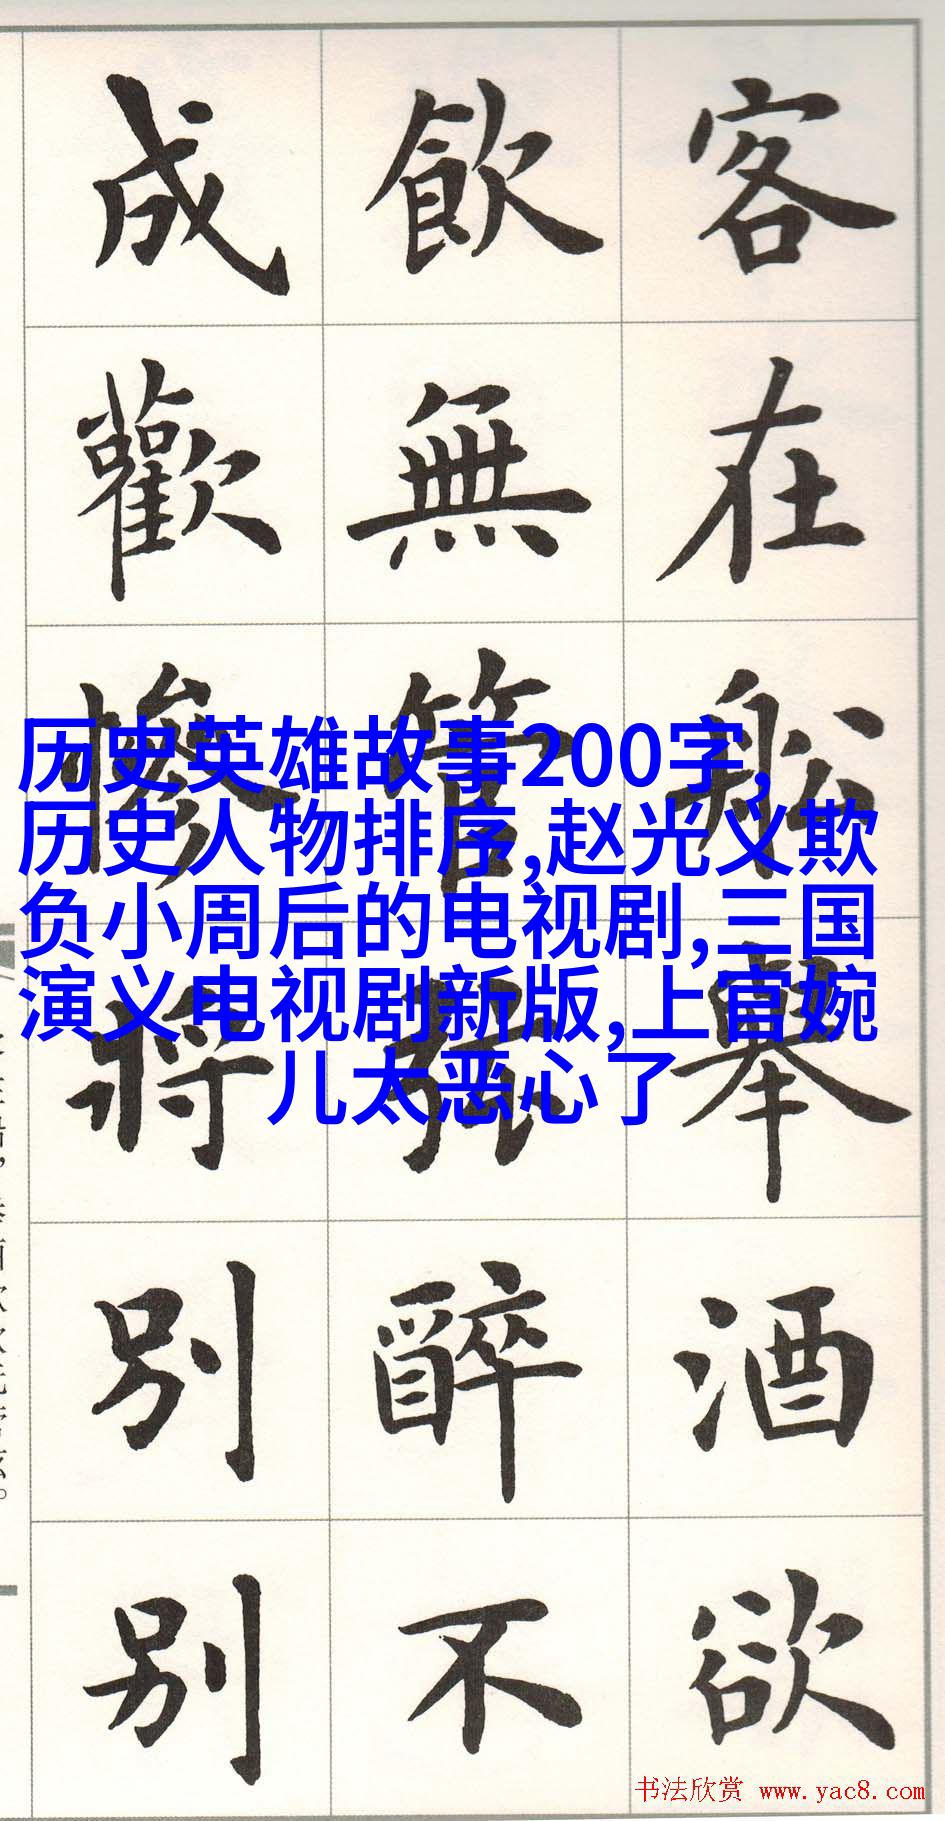 客在舩舉酒欲
飲無管弦醉不
成歡慘將別別
历史英雄故事200字,
历史人物排序,赵光义欺
负小周后的电视剧,三国
演义电视剧新版,上官婉
儿太恶心了
书法欣赏 www.yac8.com